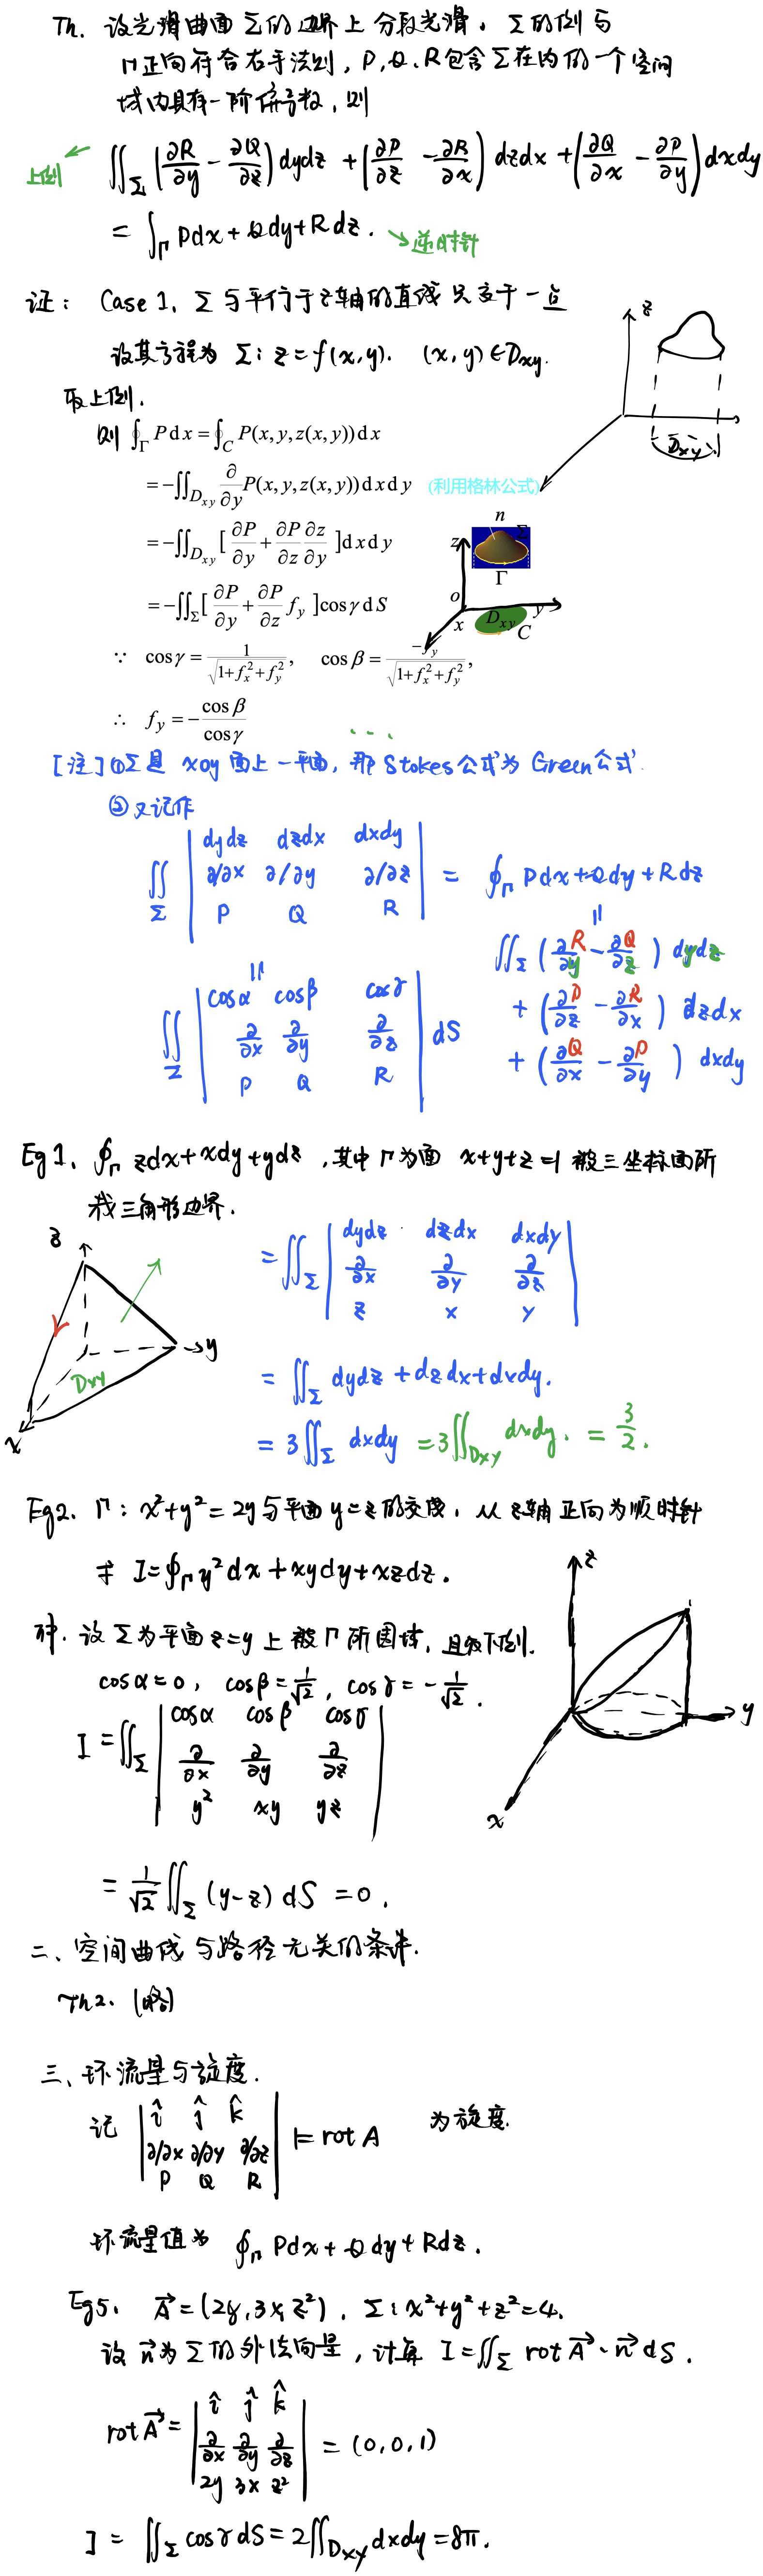 Th. 设光滑曲面 Σ 的边界上分段光滑, Σ 的侧与
Γ正向符合右手法则, P, Q, R包含Σ在内的一个空间
域内具有一阶偏导数, 则
上侧 ∬_Σ (∂R/∂y − ∂Q/∂z) dydz + (∂P/∂z − ∂R/∂x) dzdx + (∂Q/∂x − ∂P/∂y) dxdy
= ∫_Γ Pdx + Qdy + Rdz. 逆时针
证: Case 1, Σ 与平行于z轴的直线只交于一点
设其方程为 Σ: z = f(x,y). (x,y) ∈ Dxy.
取上侧.
z
Dxy
则 ∮_Γ P dx = ∮_C P(x, y, z(x, y)) dx
= −∬_{Dxy} ∂/∂y P(x, y, z(x, y)) dx dy (利用格林公式)
= −∬_{Dxy} [∂P/∂y + ∂P/∂z ∂z/∂y] dx dy
= −∬_Σ [∂P/∂y + ∂P/∂z f_y] cos γ dS
n
z Σ
Γ
o y
x Dxy C
∵ cos γ = 1/√(1+f_x²+f_y²), cos β = −f_y/√(1+f_x²+f_y²),
∴ f_y = −cos β/cos γ ...
[注] ①Σ是 xoy 面上一平面, 那 Stokes公式为 Green公式.
② 又记作
∬_Σ | dydz dzdx dxdy ; ∂/∂x ∂/∂y ∂/∂z ; P Q R | = ∮_Γ Pdx + Qdy + Rdz
|| ||
∬_Σ | cosα cosβ cosγ ; ∂/∂x ∂/∂y ∂/∂z ; P Q R | dS
∬_Σ (∂R/∂y − ∂Q/∂z) dydz
+ (∂P/∂z − ∂R/∂x) dzdx
+ (∂Q/∂x − ∂P/∂y) dxdy
Eg 1, ∮_Γ zdx + xdy + ydz, 其中 Γ为面 x+y+z=1 被三坐标面所
截三角形边界.
z
y
x
Dxy
= ∬_Σ | dydz dzdx dxdy ; ∂/∂x ∂/∂y ∂/∂z ; z x y |
= ∬_Σ dydz + dzdx + dxdy.
= 3∬_Σ dxdy = 3∬_{Dxy} dxdy. = 3/2.
Eg2. Γ: x²+y² = 2y 与平面 y=z 的交线, 从 z轴正向为顺时针
求 I = ∮_Γ y²dx + xydy + xzdz.
解. 设 Σ 为平面 z=y 上被 Γ 所围域, 且取下侧.
cosα = 0, cosβ = 1/√2, cosγ = −1/√2.
I = ∬_Σ | cosα cosβ cosγ ; ∂/∂x ∂/∂y ∂/∂z ; y² xy yz |
z
y
x
= 1/√2 ∬_Σ (y−z) dS = 0.
二、空间曲线与路径无关的条件.
Th2. (略)
三、环流量与旋度.
记 | î ĵ k̂ ; ∂/∂x ∂/∂y ∂/∂z ; P Q R | = rot A 为旋度.
环流量值为 ∮_Γ Pdx + Qdy + Rdz.
Eg5. A⃗ = (2y, 3x, z²), Σ: x²+y²+z²=4.
设 n⃗ 为 Σ 的外法向量, 计算 I = ∬_Σ rot A⃗ · n⃗ dS.
rot A⃗ = | î ĵ k̂ ; ∂/∂x ∂/∂y ∂/∂z ; 2y 3x z² | = (0,0,1)
I = ∬_Σ cosγ dS = 2∬_{Dxy} dxdy = 8π.